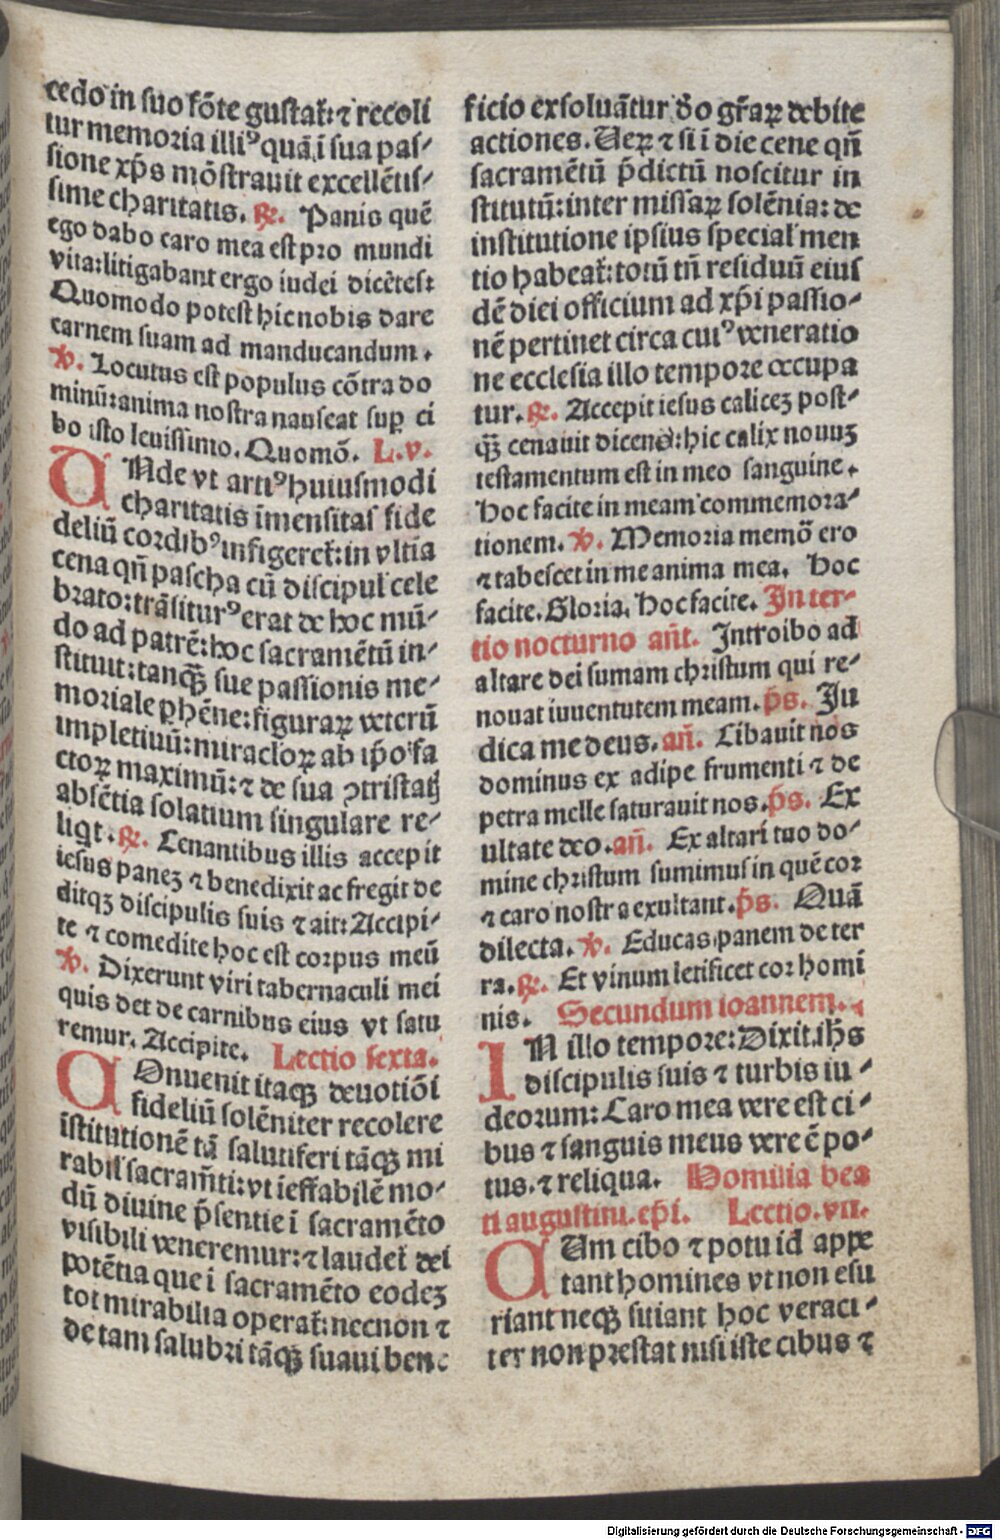 cedo in suo fōte gustať: ⁊ recoli
tur memoria illiꝰ quā ī sua pas⸗
sione xp̄s mōstrauit excellētis⸗
sime charitatis. ℟. Panis quē
ego dabo caro mea est pro mundi
vita: litigabant ergo iudei dicētes:
Quomodo potest hic nobis dare
carnem suam ad manducandum.
℣. Locutus est populus cōtra do
minū: anima nostra nauseat suꝑ ci
bo isto leuissimo. Quomō. L.v.
UNde vt artiꝰ huiusmodi
charitatis īmensitas fide
deliū cordibꝰ infigereť: in vltīa
cena qn̄ pascha cū discipul' cele
brato: trāsiturꝰ erat de hoc mū⸗
do ad patrē: hoc sacramētū in⸗
stituit: tanqꝫ sue passionis me⸗
moriale ꝑhēne: figuraꝝ veterū
impletiuū: miracloꝝ ab ip̄o fa
ctoꝝ maximū: ⁊ de sua ꝯtristatꝭ
absētia solatium singulare re⸗
liqt. ℟. Cenantibus illis accepit
iesus panez ⁊ benedixit ac fregit de
ditqꝫ discipulis suis ⁊ ait: Accipi⸗
te ⁊ comedite hoc est corpus meū
℣. Dixerunt viri tabernaculi mei
quis det de carnibus eius vt satu
remur. Accipite. Lectio sexta.
COnuenit itaqꝫ deuotiōi
fideliū solēniter recolere
īstitutionē tā salutiferi tāqꝫ mi
rabil' sacram̄ti: vt ieffabilē mo⸗
dū diuine p̄sentie ī sacramēto
visibili veneremur: ⁊ laudeť dei
potētia que ī sacramēto eodez
tot mirabilia operať: necnon ⁊
de tam salubri tāqꝫ suaui bene
ficio exsoluātur dōo gr̄aꝝ debite
actiones. Ueꝝ ⁊ si ī die cene qn̄
sacramētū p̄dictū noscitur in
stitutū: inter missaꝝ solēnia: de
institutione ipsius special' men
tio habeať: totū tn̄ residuū eius
dē diei officium ad xp̄i passio⸗
nē pertinet circa cuiꝰ veneratio
ne ecclesia illo tempore occupa
tur. ℟. Accepit iesus calicez post⸗
qꝫ cenauit dicens: hic calix nouuz
testamentum est in meo sanguine.
Hoc facite in meam commemora⸗
tionem. ℣. Memoria memō ero
⁊ tabescet in me anima mea. Hoc
facite. Gloria. Hoc facite. In ter⸗
tio nocturno an̄t. Introibo ad
altare dei sumam christum qui re⸗
nouat iuuentutem meam. p̄s. Ju
dica me deus. an̄. Cibauit nos
dominus ex adipe frumenti ⁊ de
petra melle saturauit nos. p̄s. Ex
ultate deo. an̄. Ex altari tuo do⸗
mine christum sumimus in quē cor
⁊ caro nostra exultant. p̄s. Quā
dilecta. ℣. Educas panem de ter
ra. ℟. Et vinum letificet cor homi
nis. Secundum ioannem.
IN illo tempore: Dixit ih̄s
discipulis suis ⁊ turbis iu⸗
deorum: Caro mea vere est ci⸗
bus ⁊ sanguis meus vere ē po⸗
tus. ⁊ reliqua. Homilia bea
ti augustini. ep̄i. Lectio. vii.
CUm cibo ⁊ potu id appe
tant homines vt non esu
riant neqꝫ sitiant hoc veraci⸗
ter non prestat nisi iste cibus ⁊
Digitalisierung gefördert durch die Deutsche Forschungsgemeinschaft - DFG